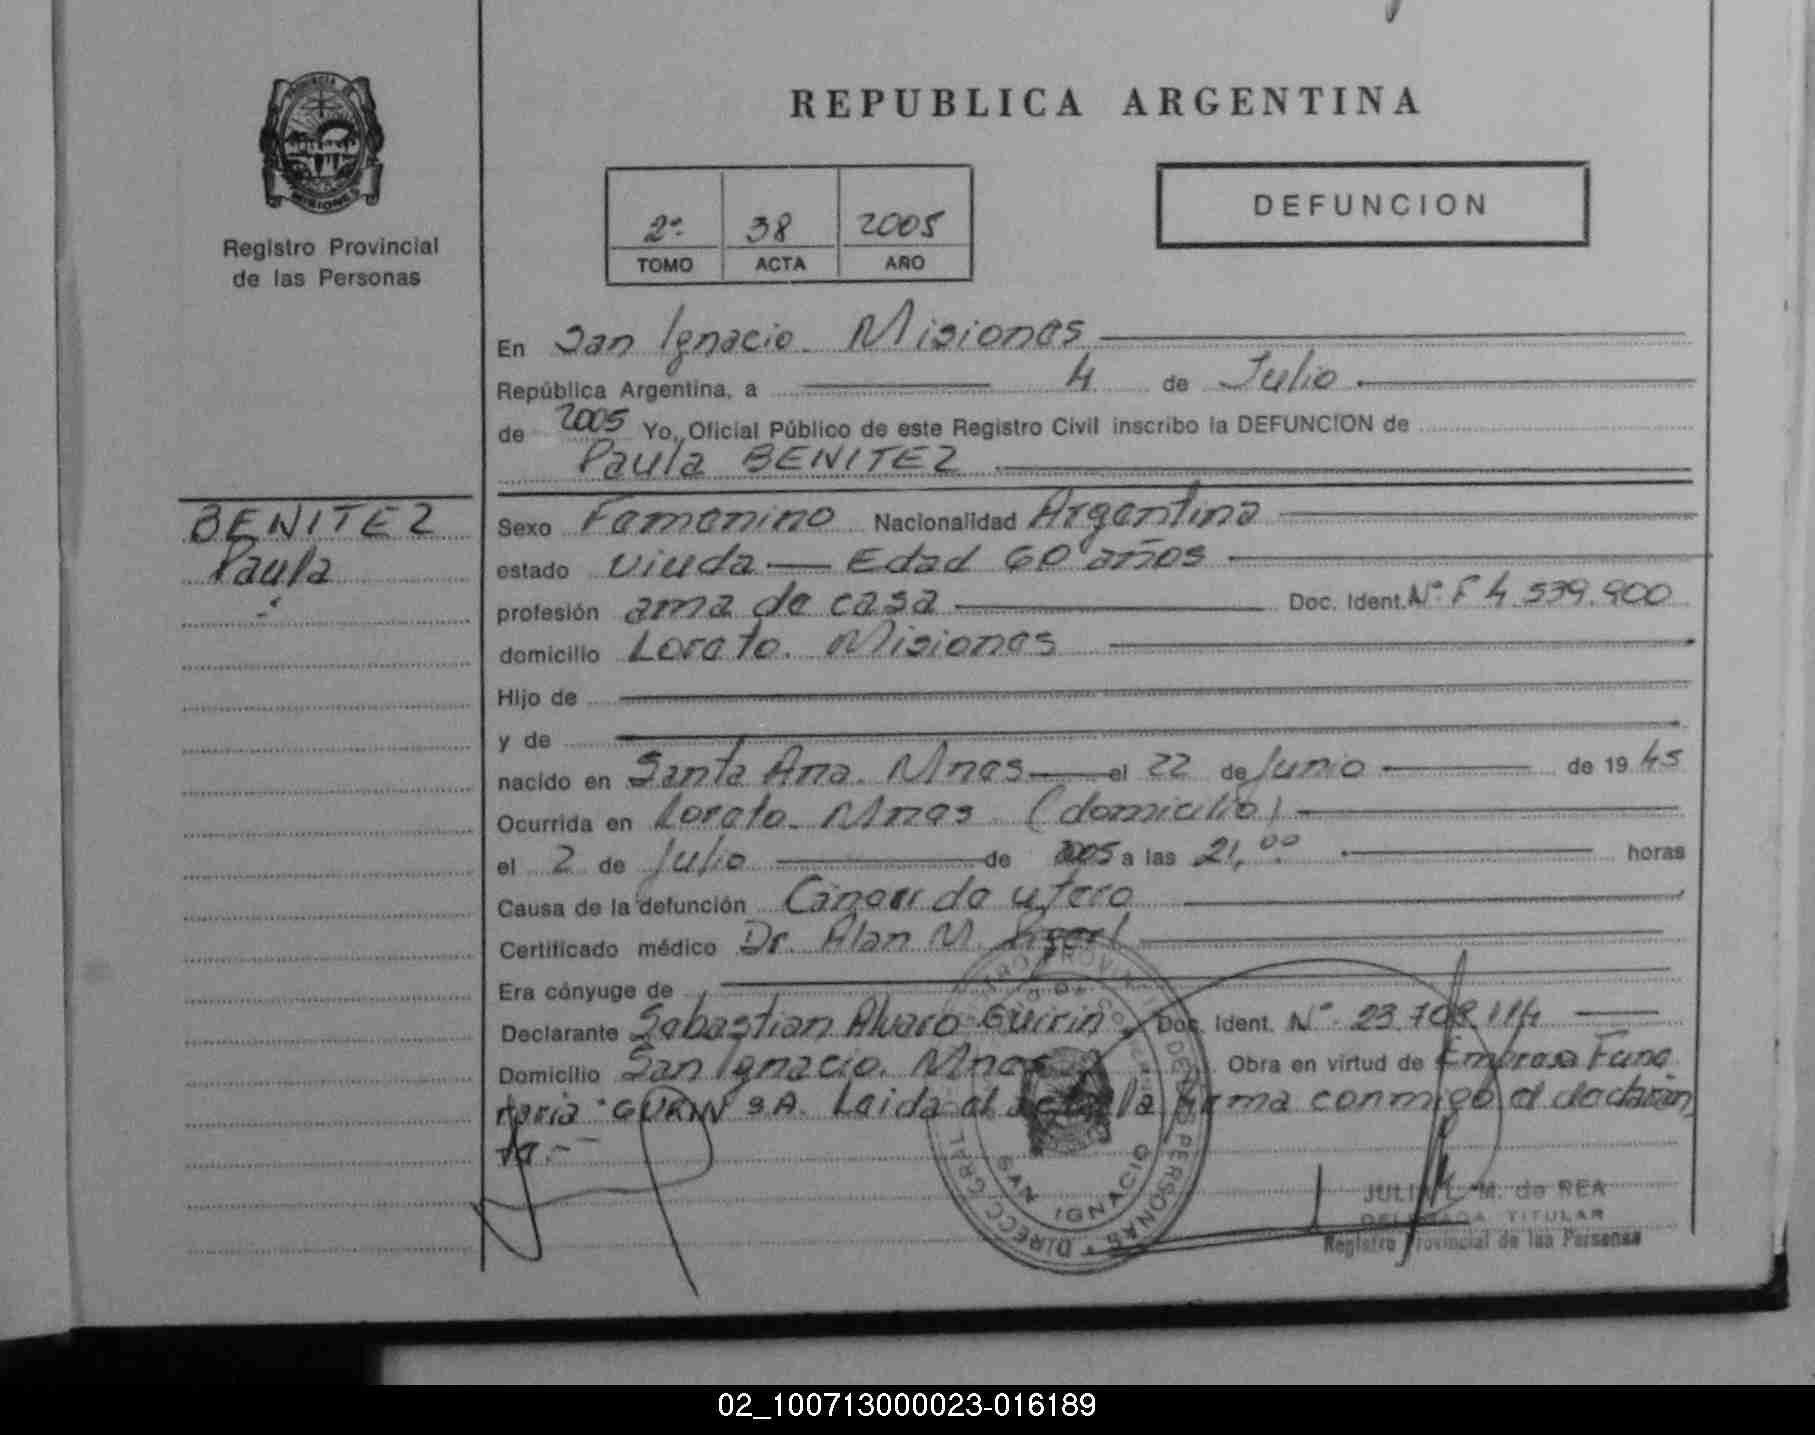 REPUBLICA ARGENTINA
PROVINCIA DE
MISIONES
Registro Provincial
de las Personas
2º 38 2005
TOMO ACTA AÑO
DEFUNCION
En San Ignacio. Misiones
República Argentina, a 4 de Julio
de 2005 Yo, Oficial Público de este Registro Civil inscribo la DEFUNCION de
Paula BENITEZ
BENITEZ
Paula
Sexo Femenino Nacionalidad Argentina
estado viuda — Edad 60 años
profesión ama de casa Doc. Ident. Nº F 4.539.900
domicilio Loreto. Misiones
Hijo de
y de
nacido en Santa Ana. Mnes — el 22 de Junio de 1945
Ocurrida en Loreto. Mnes (domicilio)
el 2 de Julio de 2005 a las 21,00 horas
Causa de la defunción Cáncer de utero
Certificado médico Dr. Alan M.
Era cónyuge de
Declarante Sebastian Alvaro Guirin Doc. Ident. Nº 23.708.114
Domicilio San Ignacio. Mnes Obra en virtud de Empresa Fune
raria "GURIN" S.A. Leida el acta la firma conmigo el declaran
te.-
DIRECC. GRAL. REGISTRO PROVINCIAL DE LAS PERSONAS
SAN IGNACIO
JULIA L. M. de REA
DELEGADA TITULAR
Registro Provincial de las Personas
02_100713000023-016189